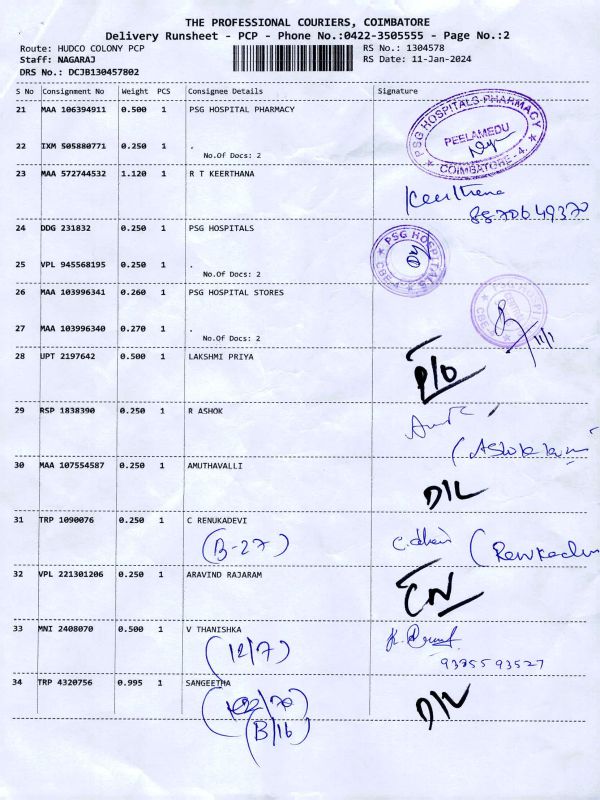 THE PROFESSIONAL COURIERS, COIMBATORE
Delivery Runsheet - PCP - Phone No.:0422-3505555 - Page No.:2
Route: HUDCO COLONY PCP RS No.: 1304578
Staff: NAGARAJ RS Date: 11-Jan-2024
DRS No.: DCJB130457802
S No Consignment No Weight PCS Consignee Details Signature
21 MAA 106394911 0.500 1 PSG HOSPITAL PHARMACY
PSG HOSPITALS PHARMACY
PEELAMEDU
COIMBATORE-4.
22 IXM 505880771 0.250 1 .
No.Of Docs: 2
23 MAA 572744532 1.120 1 R T KEERTHANA
Keerthana
8870649370
24 DDG 231832 0.250 1 PSG HOSPITALS
PSG HOSPITALS
CBE-4
25 VPL 945568195 0.250 1 .
No.Of Docs: 2
26 MAA 103996341 0.260 1 PSG HOSPITAL STORES
27 MAA 103996340 0.270 1 .
No.Of Docs: 2
11/1
28 UPT 2197642 0.500 1 LAKSHMI PRIYA
P/O
29 RSP 1838390 0.250 1 R ASHOK
30 MAA 107554587 0.250 1 AMUTHAVALLI
D/L
31 TRP 1090076 0.250 1 C RENUKADEVI
(B-27)
32 VPL 221301206 0.250 1 ARAVIND RAJARAM
33 MNI 2408070 0.500 1 V THANISHKA
(12/7)
9375593527
34 TRP 4320756 0.995 1 SANGEETHA
D/L
(B/16)